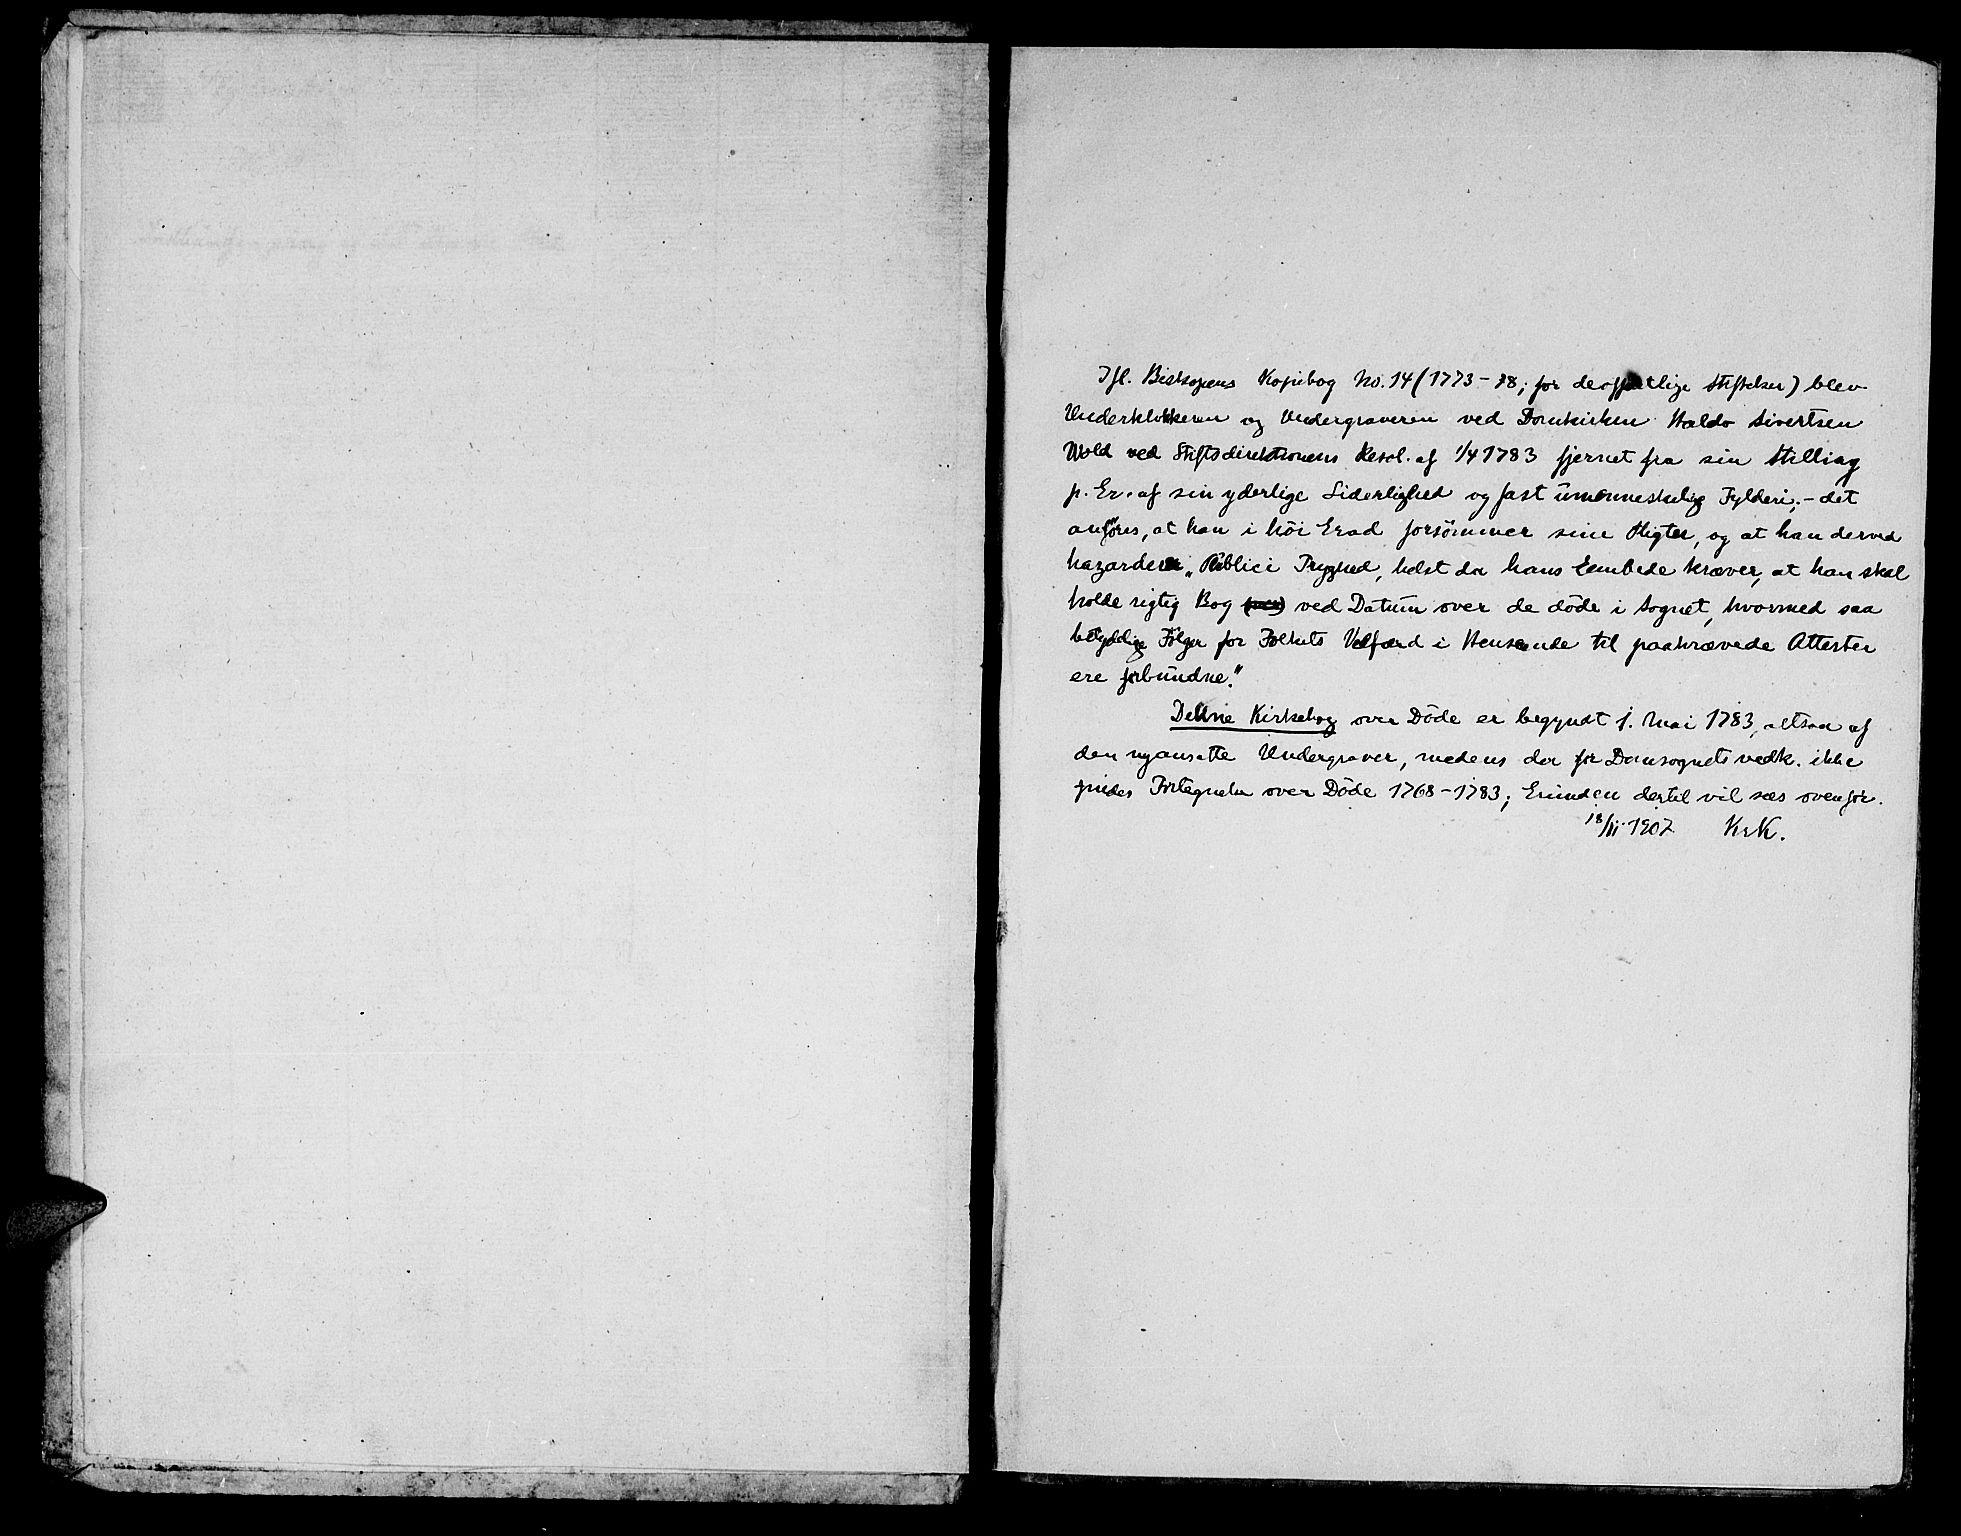 Ifl. Biskopens Kopiebog No. 14 (1773-78; for de offentlige Stiftelser) blev
Underklokkeren og Undergraveren ved Domkirken Waldo Sivertsen
Wold ved Stiftsdirektionens Resol. af 1/4 1783 fjernet fra sin Stilling
p. Gr. af sin yderlige Liderlighed og fast umenneskelig Fylderi; - det
anføres, at han i höi Grad forsömmer sine Pligter, og at han derved
hazarderer „Publici Tryghed, helst da hans Embede kræver, at han skal
holde rigtig Bog ved Datum over de döde i Sognet, hvormed saa
betydelige Fölger for Folkets Velfærd i Henseende til paakrævede Attester
ere forbundne."
Denne Kirkebog over Döde er begyndt 1. Mai 1783, altsaa af
den nyansatte Undergraver, medens der for Domsognets vedk. ikke
findes Fortegnelse over Döde 1768-1783; Grunden dertil vil sees ovenfor.
18/11 1907 KrK.